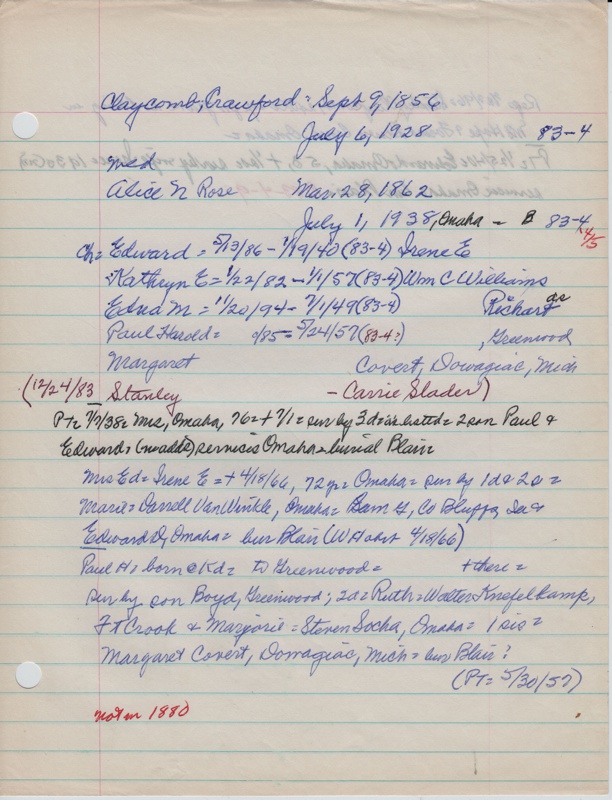 Claycomb, Crawford = Sept 9, 1856
July 6, 1928 83-4
Med
Alice N Rose Mar. 28, 1862
July 1, 1938, Omaha - B 83-4
4/5
Ch = Edward = 5/13/86 - 1/19/40 (83-4) Irene E
Kathryn E = 1/22/82 - 1/1/57 (83-4) Wm C Williams
Edna M = 11/20/94 - 7/1/49 (83-4) Richards
Paul Harold = 9/85 = 5/24/57 (83-4?) , Greenwood
Margaret Covert, Dowagiac, Mich
(12/24/83 Stanley - Carrie Slader)
PT = 7/7/38 = Mrs, Omaha, 76 = + 7/1 = sur by 3 das listed = 2 son Paul &
Edward; (no adds) services Omaha = burial Blair
Mrs Ed = Irene E = + 4/18/66, 72 yr = Omaha = sur by 1 da 2 s =
Marie = Darrell Van Winkle, Omaha = Sam G, Co Bluffs, Ia &
Edward D, Omaha = bur Blair (WH obit 4/18/66)
Paul H = born @ Kd = to Greenwood = + there =
sur by son Boyd, Greenwood; 2 d = Ruth = Walter Knefelkamp,
Ft Crook & Marjorie = Steven Socha, Omaha = 1 sis =
Margaret Covert, Dowagiac, Mich = bur Blair?
(PT = 5/30/57)
not in 1880